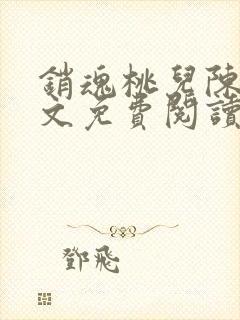 銷魂桃兒陳
文免費閱讀
鄧飛